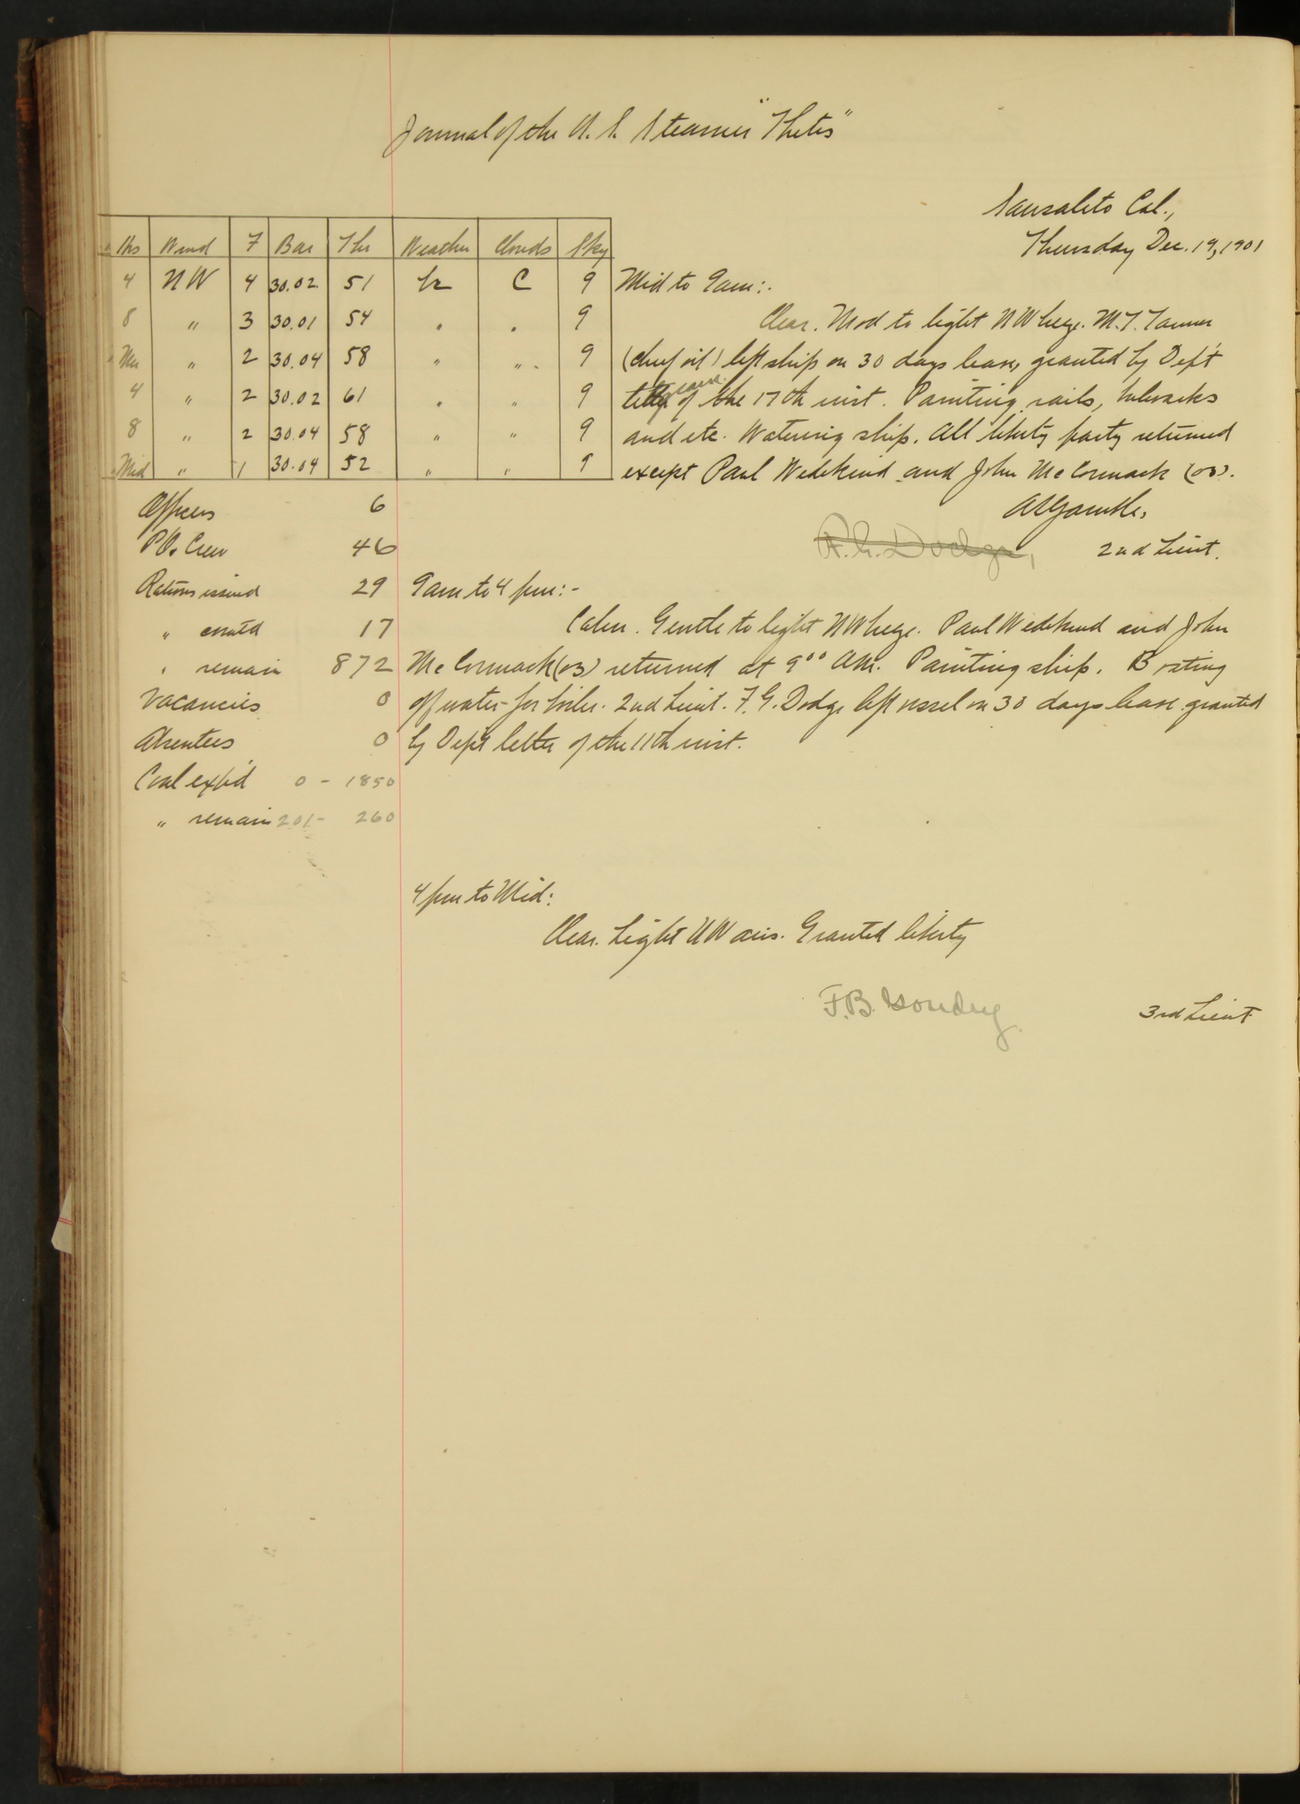 Journal of the U. S. Steamer "Thetis"
Sausalito Cal.,
Thursday Dec. 19, 1901
Hrs Wind F Bar Thr Weather Clouds Sky
4 NW 4 30.02 51 C 9
8 " 3 30.01 54 " " 9
Mer " 2 30.04 58 " " 9
4 " 2 30.02 61 " " 9
8 " 2 30.04 58 " " 9
Mid " 1 30.04 52 " " 9
Mid to 9am:-
Clear. Mod to light NW breeze. M. T. Tanner
(chief oil) left ship on 30 days leave, granted by Dep't
of the 17th inst. Painting rails, bulwarks
and etc. Watering ship. All liberty party returned
except Paul Wedekind and John McCormack (os).
2nd Lieut.
Officers 6
P.O. Crew 46
Rations issued 29
" comutd 17
" remain 872
Vacancies 0
Absentees 0
Coal exp'd 0 - 1850
" remain 201 - 260
9am to 4 pm:-
Calm. Gentle to light NW breeze. Paul Wedekind and John
McCormack (os) returned at 9°° AM. Painting ship. Boating
off water for boiler. 2nd Lieut. F. G. Dodge left vessel on 30 days leave granted
by Dep't letter of the 11th inst.
4 pm to Mid:
Clear. Light NW airs. Granted liberty
F.B.
3rd Lieut